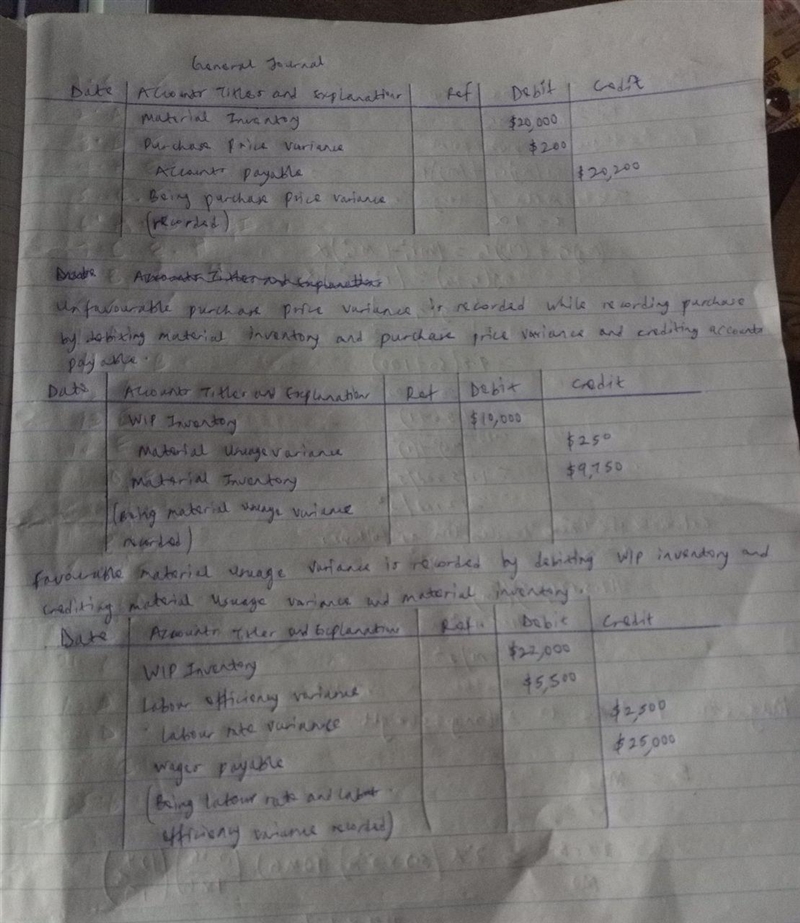 General Journal
Date Accounts Titles and Explanation Ref Debit Credit
Material Inventory $20,000
Purchase Price Variance $200
Accounts payable $20,200
Being purchase price variance
(recorded)
Accounts Titles and Explanation
Unfavourable purchase price variance is recorded while recording purchase
by debiting material inventory and purchase price variance and crediting accounts
payable.
Date Accounts Titles and Explanation Ref Debit Credit
WIP Inventory $10,000
Material Usuage variance $250
Material Inventory $9,750
(Being material usuage variance
recorded)
Favourable material usuage variance is recorded by debiting WIP inventory and
crediting material usuage variance and material inventory.
Date Accounts Titles and Explanation Ref. Debit Credit
WIP Inventory $22,000
Labour efficiency variance $5,500
Labour rate variance $2,500
Wages payable $25,000
(Being labour rate and labour
efficiency variance recorded)